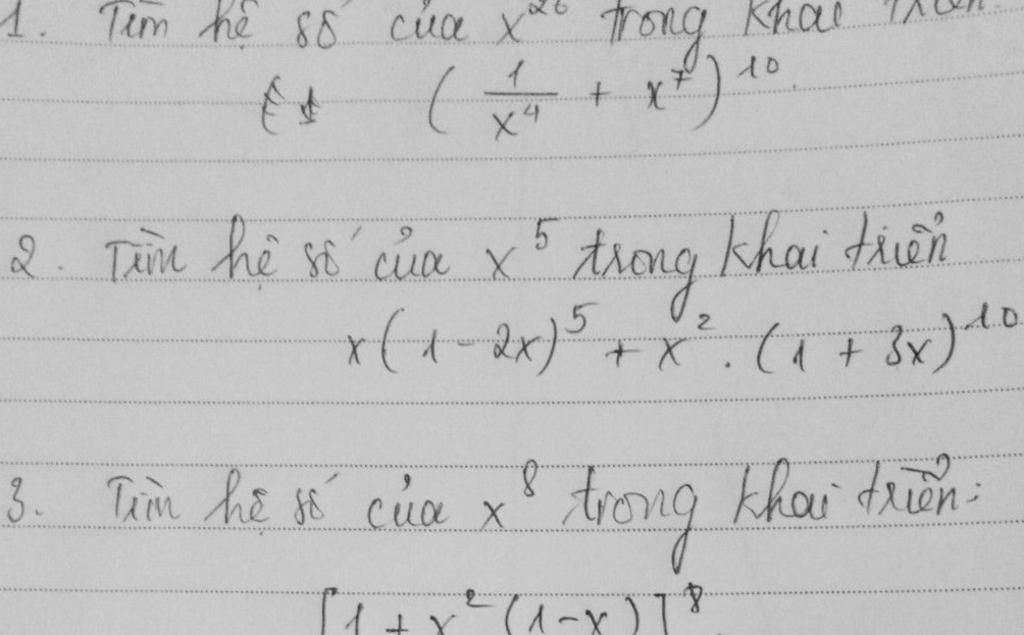 1. Tìm hệ số của x^26 trong khai triển:
( 1/x^4 + x^7 )^10.
2. Tìm hệ số của x^5 trong khai triển
x(1 - 2x)^5 + x^2 . (1 + 3x)^10
3. Tìm hệ số của x^8 trong khai triển:
[1 + x^2 (1-x)]^8